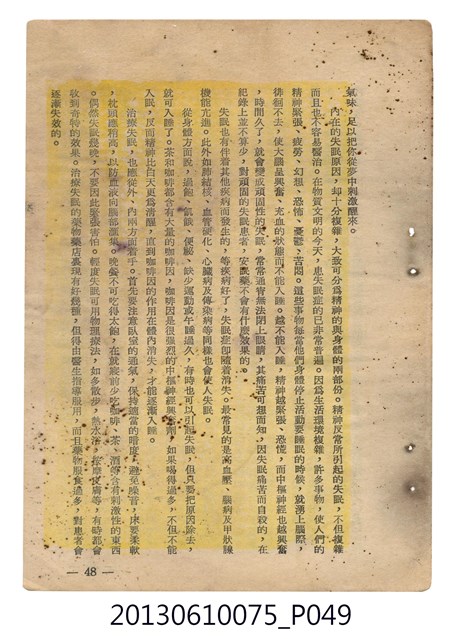 氣味，足以把你從夢中刺激醒來。
內在的失眠原因，却十分複雜，大致可分為精神的與身體的兩部份。精神反常所引起的失眠，不但複雜
而且也不容易醫治。在物質文明的今天，患失眠症的已非常普遍。因為生活環境複雜，許多事物，使人們的
精神緊張、疲勞、幻想、恐怖、憂鬱、苦悶。這些事物每當他們身體停止活動要睡眠的時候，就湧上腦際，
徘徊不去，使大腦呈興奮、充血的狀態而不能入睡。越不能入睡，精神越緊張、恐慌，而中樞神經也越興奮
，時間久了，就會變成頑固性的失眠，常常通宵無法閉上眼睛，其痛苦可想而知，因失眠痛苦而自殺的，在
紀錄上並不算少，對頑固的失眠患者，安眠藥不會有什麼效果的。
失眠也有伴着其他疾病而發生的，等疾病好了，失眠症卽隨着消失。最常見的是高血壓、腦病及甲狀腺
機能亢進。此外如肺結核、血管硬化、心臟病及傳染病等同樣也會使人失眠。
從身體方面說，過飽、飢餓、便秘、缺少運動或午睡過久，有時也可以引起失眠，但只要把原因除去，
就可入睡了。茶和咖啡都含有大量的咖啡因，咖啡因是很強烈的中樞神經興奮劑，如果喝得過多，不但不能
入眠，反而精神比白天更為清醒，直到咖啡因的作用在體內消失，才能逐漸入睡。
治療失眠，也應從外、內兩方面着手。首先要注意臥室的通氣，保持適當的暗度，避免噪音，床要柔軟
，枕頭應稍高，以防血液向腦部灌集。晚餐不可吃得太飽，在就寢前少吃咖啡、茶、酒等含有刺激性的東西
。偶然失眠幾晚，不要因此緊張害怕。輕度失眠可用物理療法，如多散步，熱水浴，按摩皮膚等，有時都會
收到奇特的效果。治療失眠的藥物藥店裏現有好幾種，但得由醫生指導服用，而且藥物服食過多，對患者會
逐漸失效的。
— 48 —
20130610075_P049